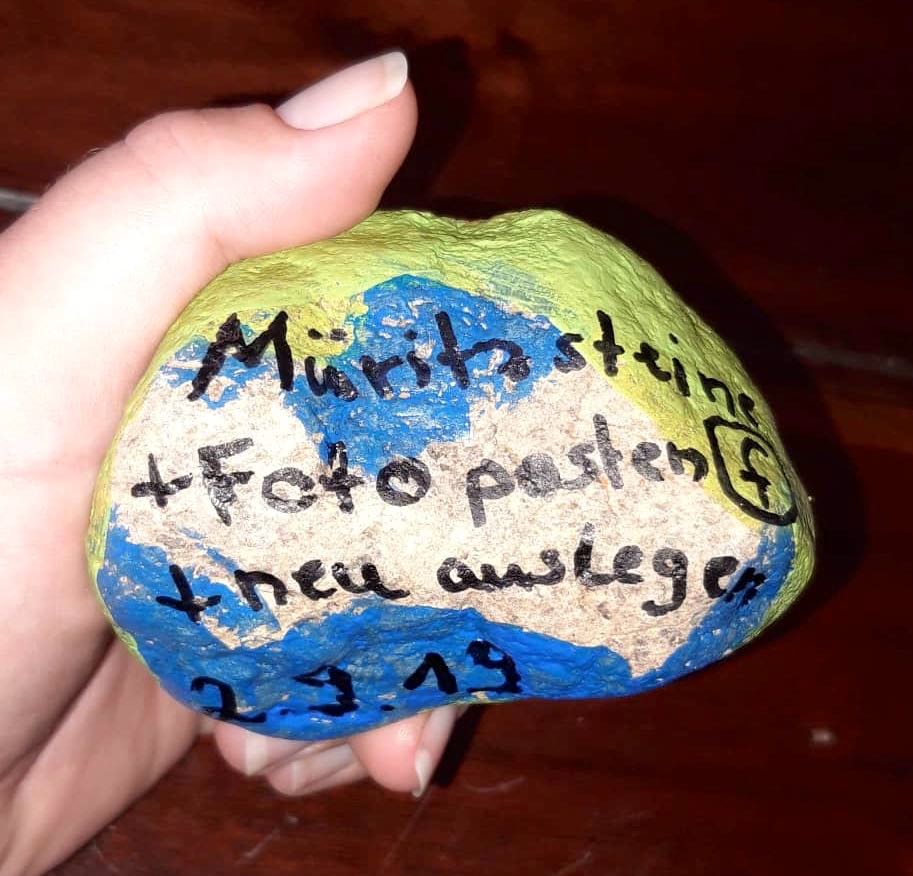 Müritzsteine
+ Foto posten f
+ neu auslegen
2.9.19